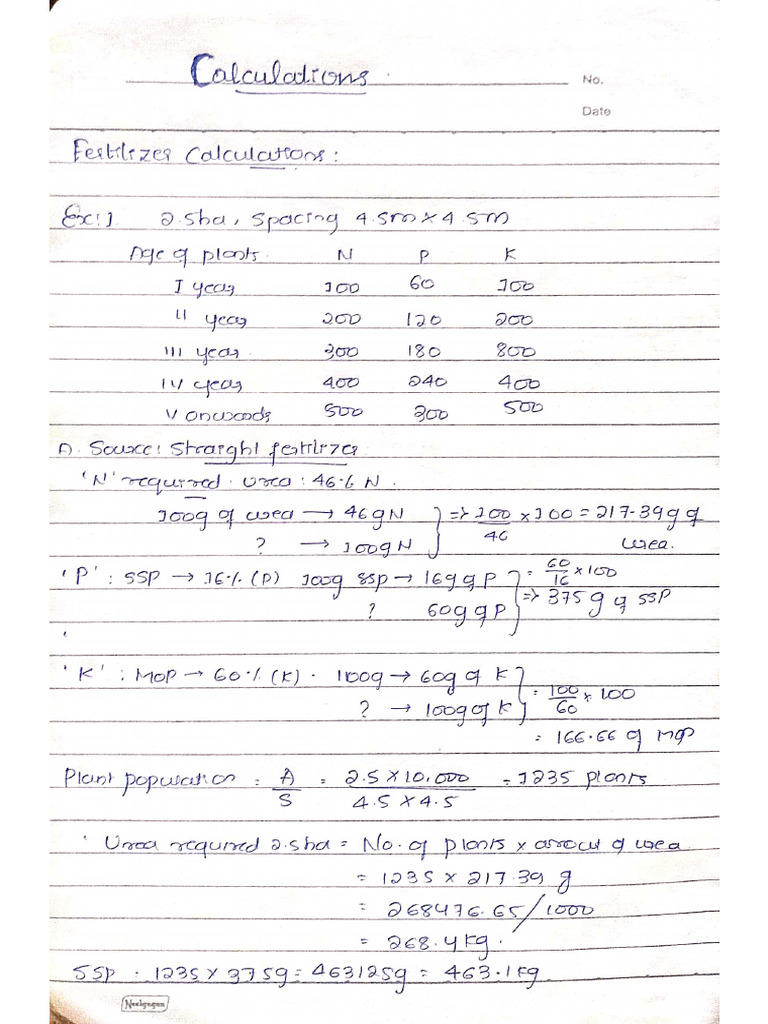 Calculations
No.
Date
Fertilizer Calculations:
Ex:1 2.5ha, Spacing 4.5m × 4.5m
Age of plants N P K
I year 100 60 100
II year 200 120 200
III year 300 180 800
IV year 400 240 400
V onwoods 500 300 500
A. Source: Straight fertilizer
'N' required. Urea: 46.% N.
100g of urea → 46gN
? → 100gN
=> 100/46 × 100 = 217.39g of urea.
'P': SSP → 16.% (P) 100g SSP → 16g of P
? 60g of P
= 60/16 × 100
=> 375g of SSP
'K': MOP → 60.% (K). 100g → 60g of K
? → 100g of K
= 100/60 × 100
= 166.66 of MOP
Plant population = A/S = 2.5 × 10,000 / 4.5 × 4.5 = 1235 plants
Urea required 2.5ha = No. of plants × of urea
= 1235 × 217.39 g
= 268476.65/1000
= 268.4 kg.
SSP = 1235 × 375g = 463125g = 463.1kg
Neelgagan